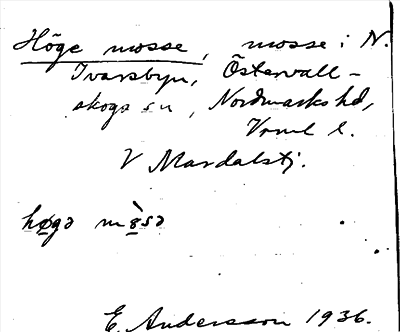 Höge mosse, mosse i N.
Ivarsbyn, Östervall-
skogs sn, Nordmarks hd,
Vrml l.
V Mardalstj.
høgə mòsə
E. Andersson 1936.